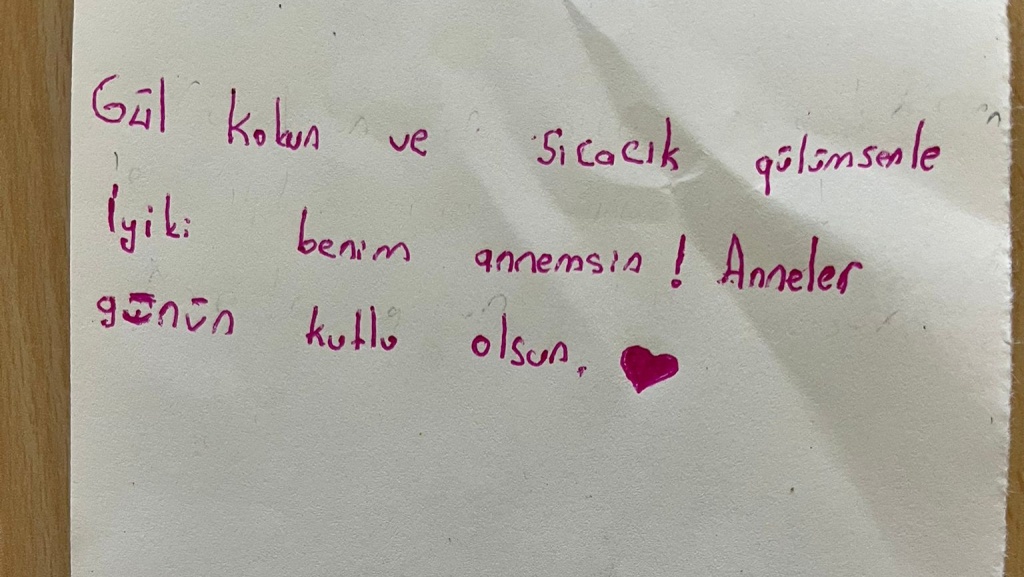 Gül kokun ve Sıcacık gülümsenle
İyiki benim annemsin! Anneler
günün kutlu olsun.